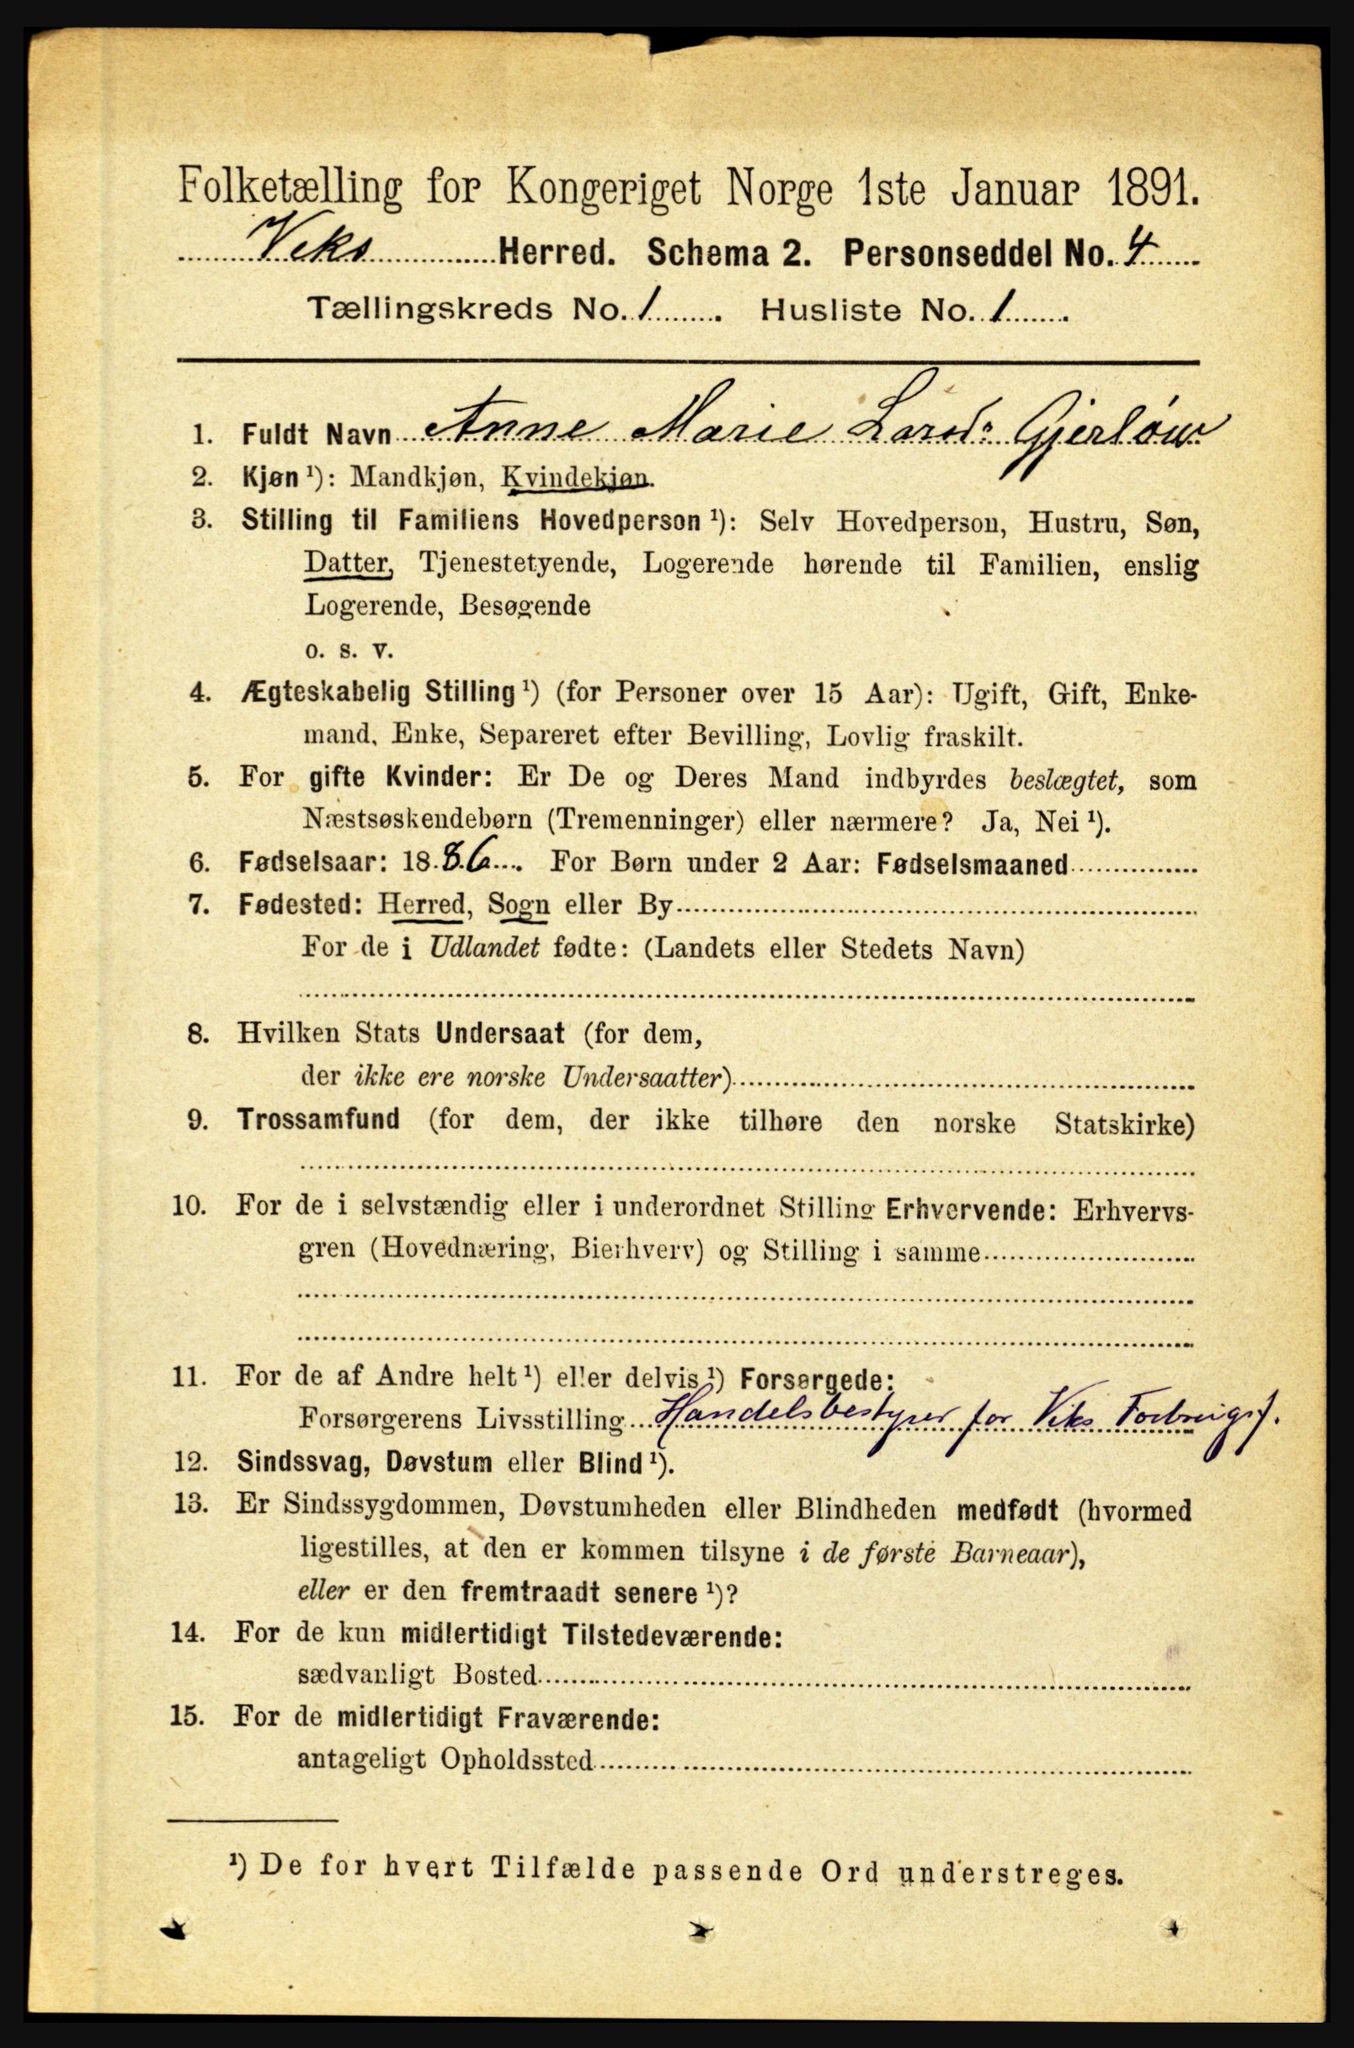 Folketælling for Kongeriget Norge 1ste Januar 1891.
Viks Herred. Schema 2. Personseddel No. 4
Tællingskreds No. 1. Husliste No. 1.
1. Fuldt Navn Anne Marie Larsd: Gjerløw
2. Kjøn ¹): Mandkjøn, Kvindekjøn.
3. Stilling til Familiens Hovedperson ¹): Selv Hovedperson, Hustru, Søn,
Datter, Tjenestetyende, Logerende hørende til Familien, enslig
Logerende, Besøgende
o. s. v.
4. Ægteskabelig Stilling ¹) (for Personer over 15 Aar): Ugift, Gift, Enke-
mand, Enke, Separeret efter Bevilling, Lovlig fraskilt.
5. For gifte Kvinder: Er De og Deres Mand indbyrdes beslægtet, som
Næstsøskendebørn (Tremenninger) eller nærmere? Ja, Nei ¹).
6. Fødselsaar: 1886. For Børn under 2 Aar: Fødselsmaaned
7. Fødested: Herred, Sogn eller By
For de i Udlandet fødte: (Landets eller Stedets Navn)
8. Hvilken Stats Undersaat (for dem,
der ikke ere norske Undersaatter)
9. Trossamfund (for dem, der ikke tilhøre den norske Statskirke)
10. For de i selvstændig eller i underordnet Stilling Erhvervende: Erhvervs-
gren (Hovednæring, Bierhverv) og Stilling i samme
11. For de af Andre helt ¹) eller delvis ¹) Forsørgede:
Forsørgerens Livsstilling Handelsbestyrer for Viks Forbrugsf.
12. Sindssvag, Døvstum eller Blind ¹).
13. Er Sindssygdommen, Døvstumheden eller Blindheden medfødt (hvormed
ligestilles, at den er kommen tilsyne i de første Barneaar),
eller er den fremtraadt senere ¹)?
14. For de kun midlertidigt Tilstedeværende:
sædvanligt Bosted
15. For de midlertidigt Fraværende:
antageligt Opholdssted
¹) De for hvert Tilfælde passende Ord understreges.